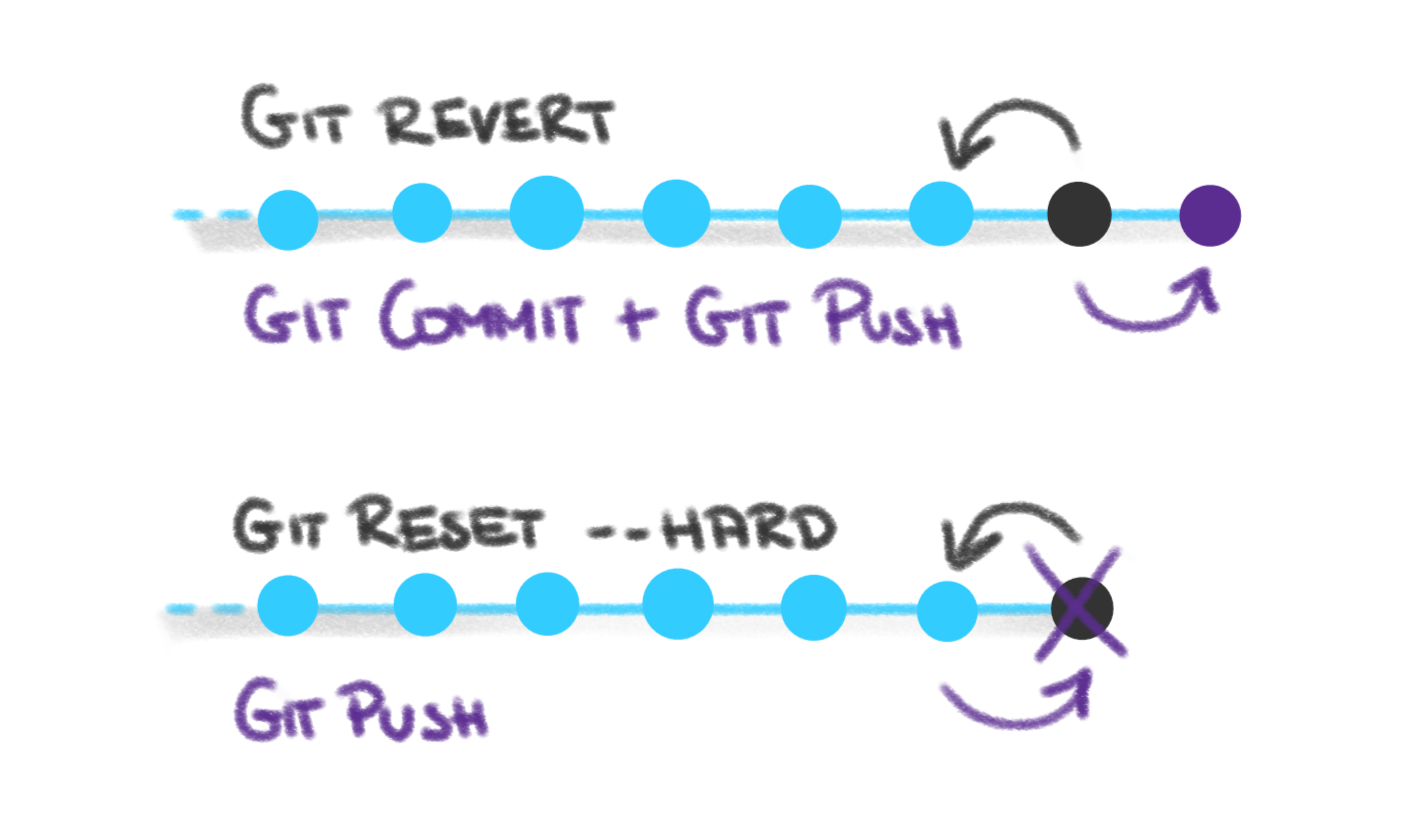 GIT REVERT
GIT COMMIT + GIT PUSH
GIT RESET --HARD
GIT PUSH